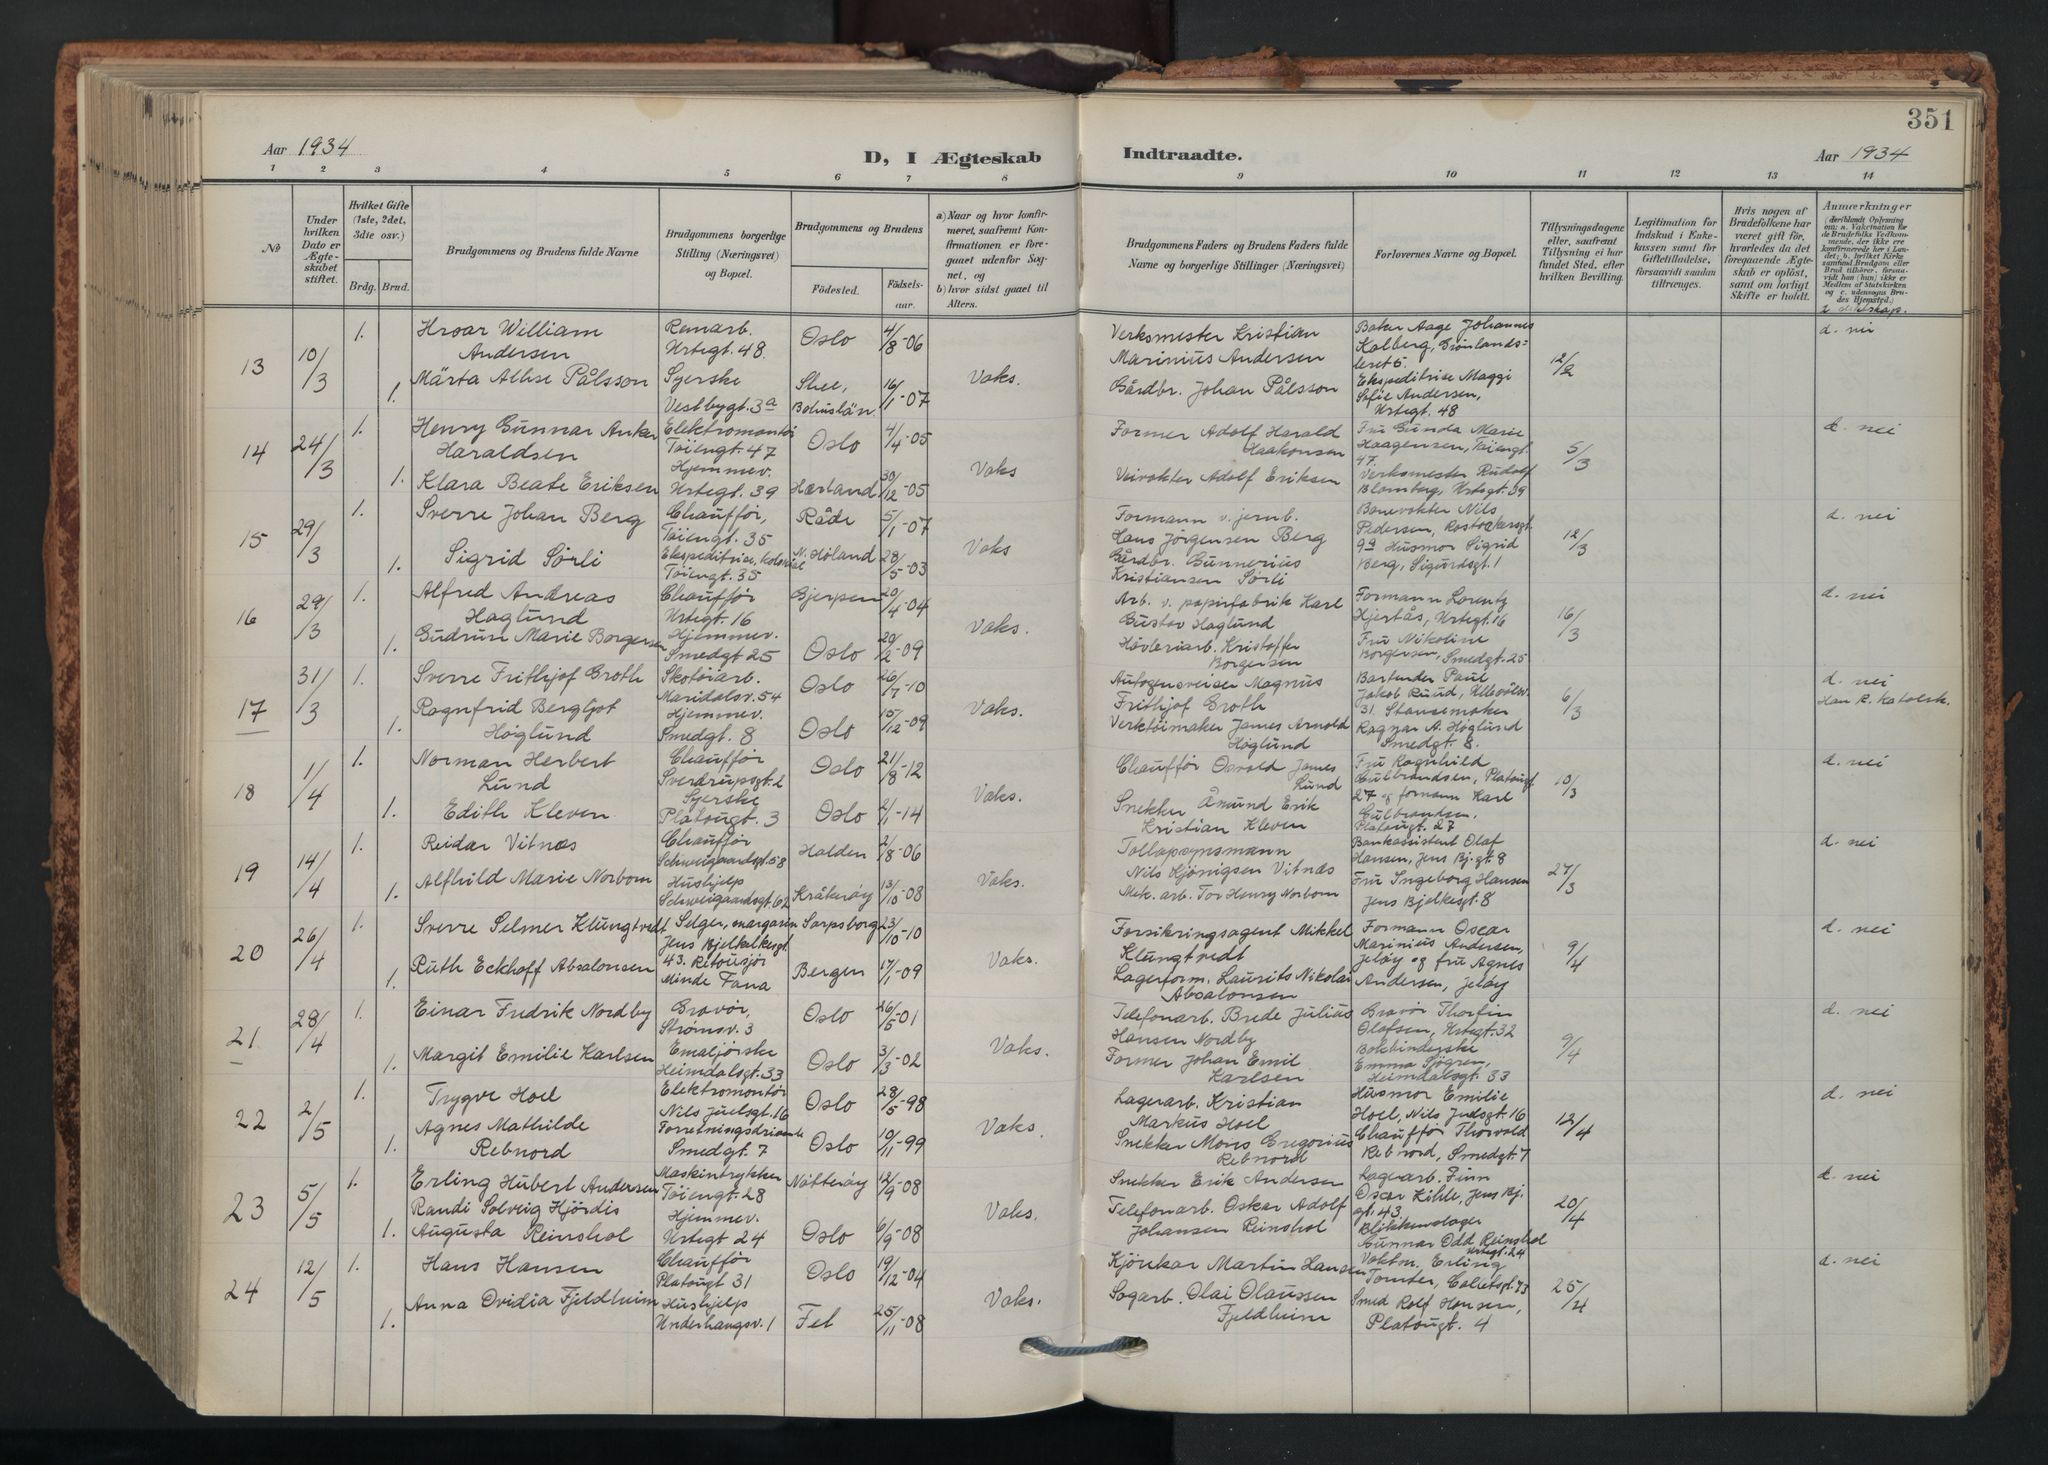 351
Aar 1934
D, I Ægteskab Indtraadte.
Aar 1934
1 2 3 4 5 6 7 8 9 10 11 12 13 14
No
Under hvilken Dato er Ægteskabet stiftet.
Hvilket Gifte (1ste, 2det, 3die osv.)
Brdg. Brud.
Brudgommens og Brudens fulde Navne
Brudgommens borgerlige Stilling (Næringsvei) og Bopæl.
Brudgommens og Brudens
Fødested.
Fødselsaar.
a) Naar og hvor konfirmeret, saafremt Konfirmationen er foregaaet udenfor Sognet, og
b) hvor sidst gaaet til Alters.
Brudgommens Faders og Brudens Faders fulde Navne og borgerlige Stillinger (Næringsvei)
Forlovernes Navne og Bopæl.
Tillysningsdagene eller, saafremt Tillysning ei har fundet Sted, efter hvilken Bevilling.
Legitimation for Indskud i Enkekassen samt for Giftetilladelse, forsaavidt saadan tiltrænges.
Hvis nogen af Brudefolkene har været gift før, hvorledes da det foregaaende Ægteskab er opløst, samt om lovligt Skifte er holdt.
Anmærkninger
13 10/3 1. Hroar William Andersen
Remarb. Urtegt. 48. Oslo 4/8-06
1. Märta Alhse Pålsson
Syerske Vestbygt. 3a
Skee, Bohuslän. 16/1-07
Vaks.
Verksmester Kristian Marinius Andersen
Gårdbr. Johan Pålsson
Baker Aage Johannes Kolberg, Grønlandsleret 5.
Ekspeditrise Maggi Sofie Andersen, Urtegt. 48
12/2
d. nei
14 24/3 1. Henry Gunnar Anker Haraldsen
Elektromontör Töiengt. 47 Oslo 4/4-05
1. Klara Beate Eriksen
Hjemmev. Urtegt. 39 Hærland 30/12-05
Vaks
Former Adolf Harald Haakonsen
Veivokter Adolf Eriksen
Fru Gunda Marie Haagensen, Töiengt. 47.
Verksmester Rudolf Blomberg, Urtegt. 39
5/3
d. nei
15 29/3 1. Sverre Johan Berg
Chaufför, Töiengt. 35 Råde 5/1-07
1. Sigrid Sørli
Ekspeditrise, kolonial Töiengt. 35 N. Høland 28/5-03
Vaks
Formann v. jernb. Hans Jörgensen Berg
Gårdbr. Gunnerius Kristiansen Sørli
Banevokter Nils Pedersen, Rostockergt 9a
Husmor Sigrid Berg, Sigurdsgt. 1
12/3
d. nei
16 29/3 1. Alfred Andreas Haglund
Chaufför Urtegt. 16 Gjerpen 20/4-04
1. Gudrun Marie Borgersen
Hjemmev. Smedgt 25 Oslo 20/2-09
Vaks.
Arb. v. papirfabrik Karl Gustav Haglund
Høvleriarb. Kristoffer Borgersen
Formann Lorentz Hjertås, Urtegt. 16
Fru Nikoline Borgersen, Smedgt. 25
16/3
d. nei
17 31/3 1. Sverre Frithjof Groth
Skotöiarb. Maridalsv. 54 Oslo 26/7-10
1. Ragnfrid Bergljot Höglund
Hjemmev. Smedgt. 8 Oslo 15/12-09
Vaks.
Autogensveiser Magnus Frithjof Groth
Verktöimaker James Arnold Höglund
Bartender Paul Jakob Ruud, Ullevålsv. 31.
Stansemaker Ragnar A. Höglund Smedgt. 8.
6/3
d. nei
Han R. Katolsk.
18 1/4 1. Norman Herbert Lund
Chaufför Sverdrupsgt. 2 Oslo 21/8-12
1. Edith Kleven
Syerske Platougt. 3 Oslo 2/1-14
Vaks.
Chaufför Osvald James Lund
Snekker Åmund Erik Kristian Kleven
Fru Ragnhild Gulbrandsen, Platougt 27 og formann Karl Gulbrandsen. Platougt. 27
10/3
d. nei
19 14/4 1. Reidar Vitnæs
Chaufför Schweigaardsgt. 58 Halden 2/8-06
1. Alfhild Marie Norbom
Hushjelp Schweigaardsgt. 62 Kråkeröy 13/10-08
Vaks.
Tollopsynsmann Nils Kjönigsen Vitnæs
Mek. arb. Tor Henry Norbom
Bankassistent Olaf Hansen, Jens Bj. gt. 8
Fru Ingeborg Hansen Jens Bjelkesgt. 8
27/3
d. nei
20 26/4 1. Sverre Selmer Klungtvedt
Selger, margarin Jens Bjelkesgt 43. Sarpsborg 23/10-10
1. Ruth Eckhoff Absalonsen
Ritousjör Minde Fana Bergen 17/1-09
Vaks.
Forsikringsagent Mikkel Klungtvedt
Lagerform. Laurits Nikolai Absalonsen
Formann Oscar Marinius Andersen, Jeløy og fru Agnes Andersen, Jeløy
9/4
d. nei
21 28/4 1. Einar Fredrik Nordby
Gravör, Strømsv. 3 Oslo 26/5-01
1. Margit Emilie Karlsen
Emaljörske Heimdalsgt. 33 Oslo 3/3-02
Vaks.
Telefonarb. Brede Julius Hansen Nordby
Former Johan Emil Karlsen
Gravör Thorfin Olafsen, Urtegt. 32
Bokbinderske Emma Sjögren, Heimdalsgt. 33
9/4
d. nei
22 2/5 1. Trygve Hoel
Elektromontör Nils Juelsgt. 16 Oslo 28/5-98
1. Agnes Mathilde Rebnord
Forretningsdrivende Smedgt. 7 Oslo 10/11-99
Vaks.
Lagerarb. Kristian Markus Hoel
Snekker Mons Gregorius Rebnord
Husmor Emilie Hoel, Nils Juelsgt. 16
Chaufför Thorvald Rebnord, Smedgt. 7
12/4
d. nei
23 5/5 1. Erling Hubert Andersen
Maskintrykker Töiengt. 28 Nötteröy 12/9-08
1. Randi Solveig Hjördis Augusta Reinshol
Hjemmev. Urtegt 24 Oslo 6/9-08
Vaks.
Snekker Erik Andersen
Telefonarb. Oskar Adolf Johansen Reinshol
Lagerarb. Finn Oscar Kihle, Jens Bj. gt. 43
Blikkenslager Gunnar Odd Reinshol Urtegt. 24
20/4
d. nei
24 12/5 1. Hans Hansen
Chaufför Platougt 31 Oslo 19/12-04
1. Anna Ovidia Fjeldheim
Hushjelp Underhaugsv. 1 Fet 25/11-08
Vaks.
Kjörekar Martin Hansen
Sagarb. Olai Olaussen Fjeldheim
Vaktm. Erling Tomter, Colletsgt. 73
Smed Rolf Hansen, Platougt. 4
25/4
d. nei